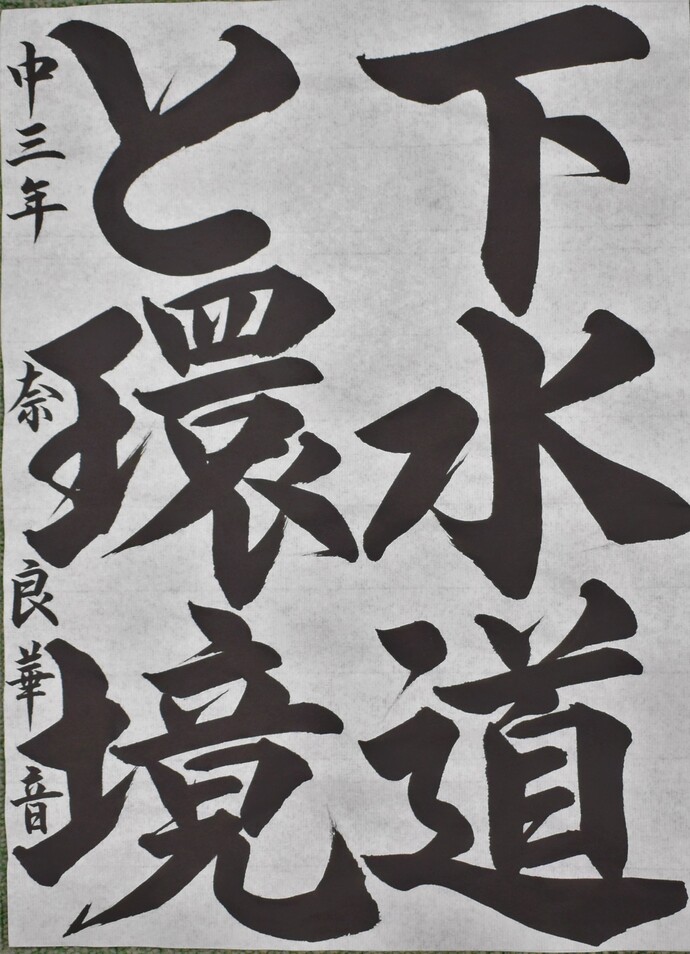 下水道
と環境
中三年 奈良華音